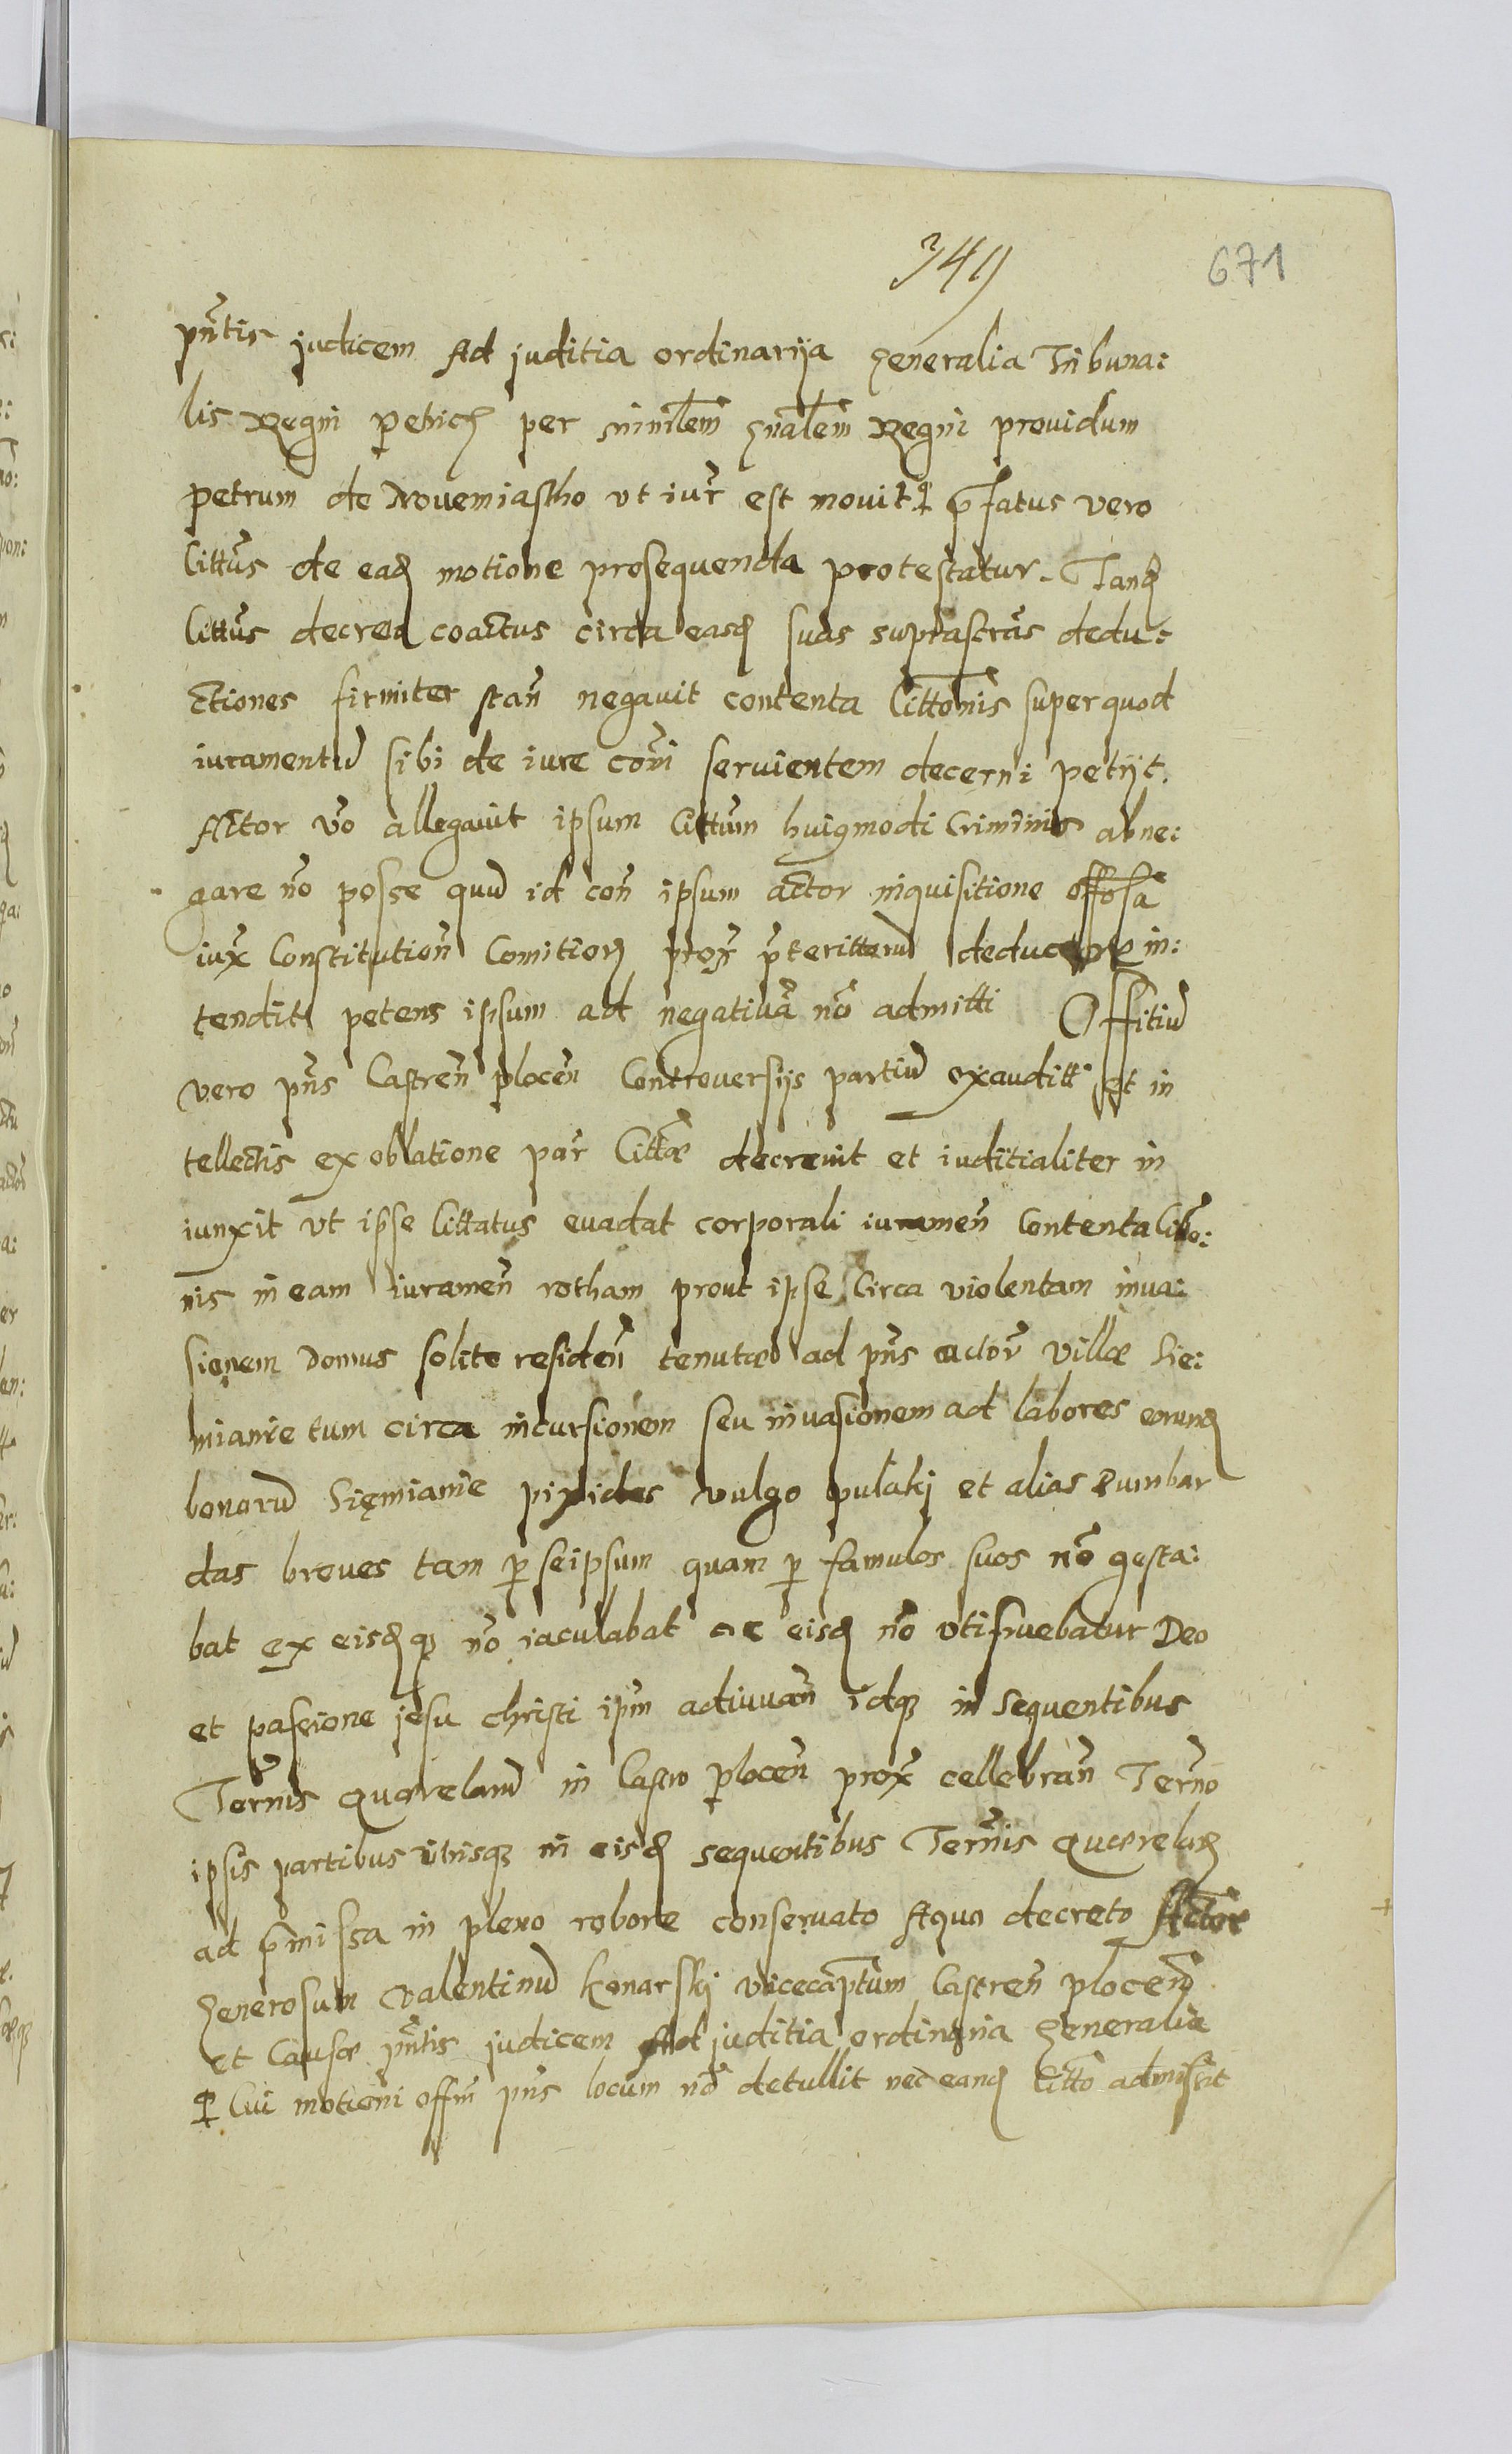 349
671
pn̄tis judicem Ad juditia ordinarija generalia Tribuna:
lis Regni petric per minrlem gnalem Regni prouidum
petrum de Nouemiastho vt iur est mouit ꝑfatus vero
Cittus de ead motione prosequenda protestatur. Tand
Cittus decreta coactus circa easd suas suprascras dedu:
ctiones firmiter stan negauit contenta Cittonis super quod
iuramentu sibi de iure comi seruientem decerni petijt.
Actor vo allegauit ipsum Cittum huigmodi Criminis abne:
gare no posse quu id con ipsum actor inquisitione offosa
iux Constitution Comitior prox pteritteru deducere in:
tendit petens ipsum ad negatiua no admitti Offitiu
vero pns Castren plocen Controuersijs partiu exauditt et in
tellectis ex oblatione par Cittæ decreuit et iuditialiter in
iunxit vt ipse Cittatus euadat corporali iuramen Contenta Citto:
nis in eam iuramen rotham prout ipse Circa violentam inua:
sionem domus solite residen tenutæ ad pns actor villæ Sie:
mianie tum circa incursionem seu inuasionem ad labores eorund
bonoru Sięmianie pixides vulgo pulaki et alias Bumbar
das breues tam p seipsum quam p famulos suos no gesta:
bat ex eisdqz no iaculabat ac eisd no vtifruebatur Deo
et passione jesu christi ipm adiuuan idqz in sequentibus
Termis quæelaru in Castro plocen prox cellebran Termo
ipsis partibus vtrisqz in eisd sequentibus Termis quærelar
ad pmissa in pleno robore conseruato Aquo decreto Actor
generosum Valentinu Konarskj vicecaptum Castren plocen
et Causæ pntis judicem Ad juditia ordinaria generalia
Cui motioni offm pns locum no detullit nec eand Citto admisit